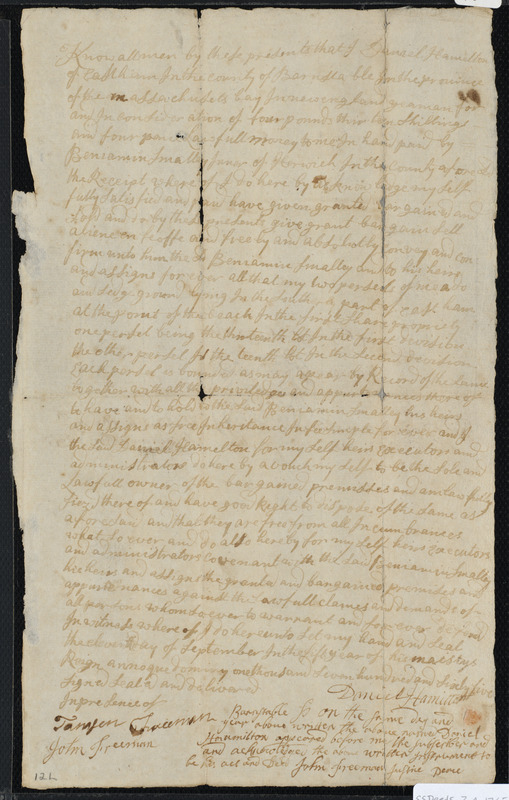 Know all men by these presents that I Daniel Hamilton
of Eastham In the county of Barnstable In the province
of the massachusets bay In newengland yeaman for
and In consideration of four pounds thirteen shillings
and four pence Lawfull money to me In hand paid by
Beniamin Smalley Juner of Harwich In the County aforesd
the Receipt where of I do here by acknowledge my self
fully satesfied and paid have given granted bargained and
sold and do by these presents give grant bargain sell
aliene en feoffe and freely and absolutly convay and con
firm unto him the sd Beniamin Smalley and to his heirs
and assigns for ever all that my two persels of meado
and sedge ground lying In the South part of east ham
at the point of the beach In the first share propriety
one persel being the thirteenth lot In the first devision
the other persel Is the tenth lot In the second devision
Each persel is bounded as may apear by Record of the same
together with all the priviledges and appurtenances there of
to have and to hold to the said Beniamin Smalley his heirs
and assigns as free Inheritance In fee simple for ever and I
the said Daniel Hamelton for my self heirs Executors and
administrators do here by avouch my self to be the sole and
Lawfull owner of the bargained premisses and am lawfully
siezed there of and have good Right to dispose of the same as
afore said and that they are free from all Incumbrances
what so ever and do also hereby for my self heirs Executors
and administrators covenant with the said Beniamin Smalley
his heirs and assigns the granted and bargained premises and
appurtenances against the Lawfull clames and demands of
all persons whomsoever to warrant and for ever defend
In witnes where of I do hereunto set my hand and seal
the eleventh day of September In the fifth year of his maiestys
Reign annoque domini one thousand seven hundred and sixty five
Signed Seal'd and delivered
In presence of
Daniel Hamilton
Tamsen Freeman
John Freeman
Barnstable Ss on the same day and
year above written the above named Daniel
Hammilton appeared before me the subscriber and
and acknowledged the above written Instrument to
be his act and Deed John Freeman Justice Peace
12L